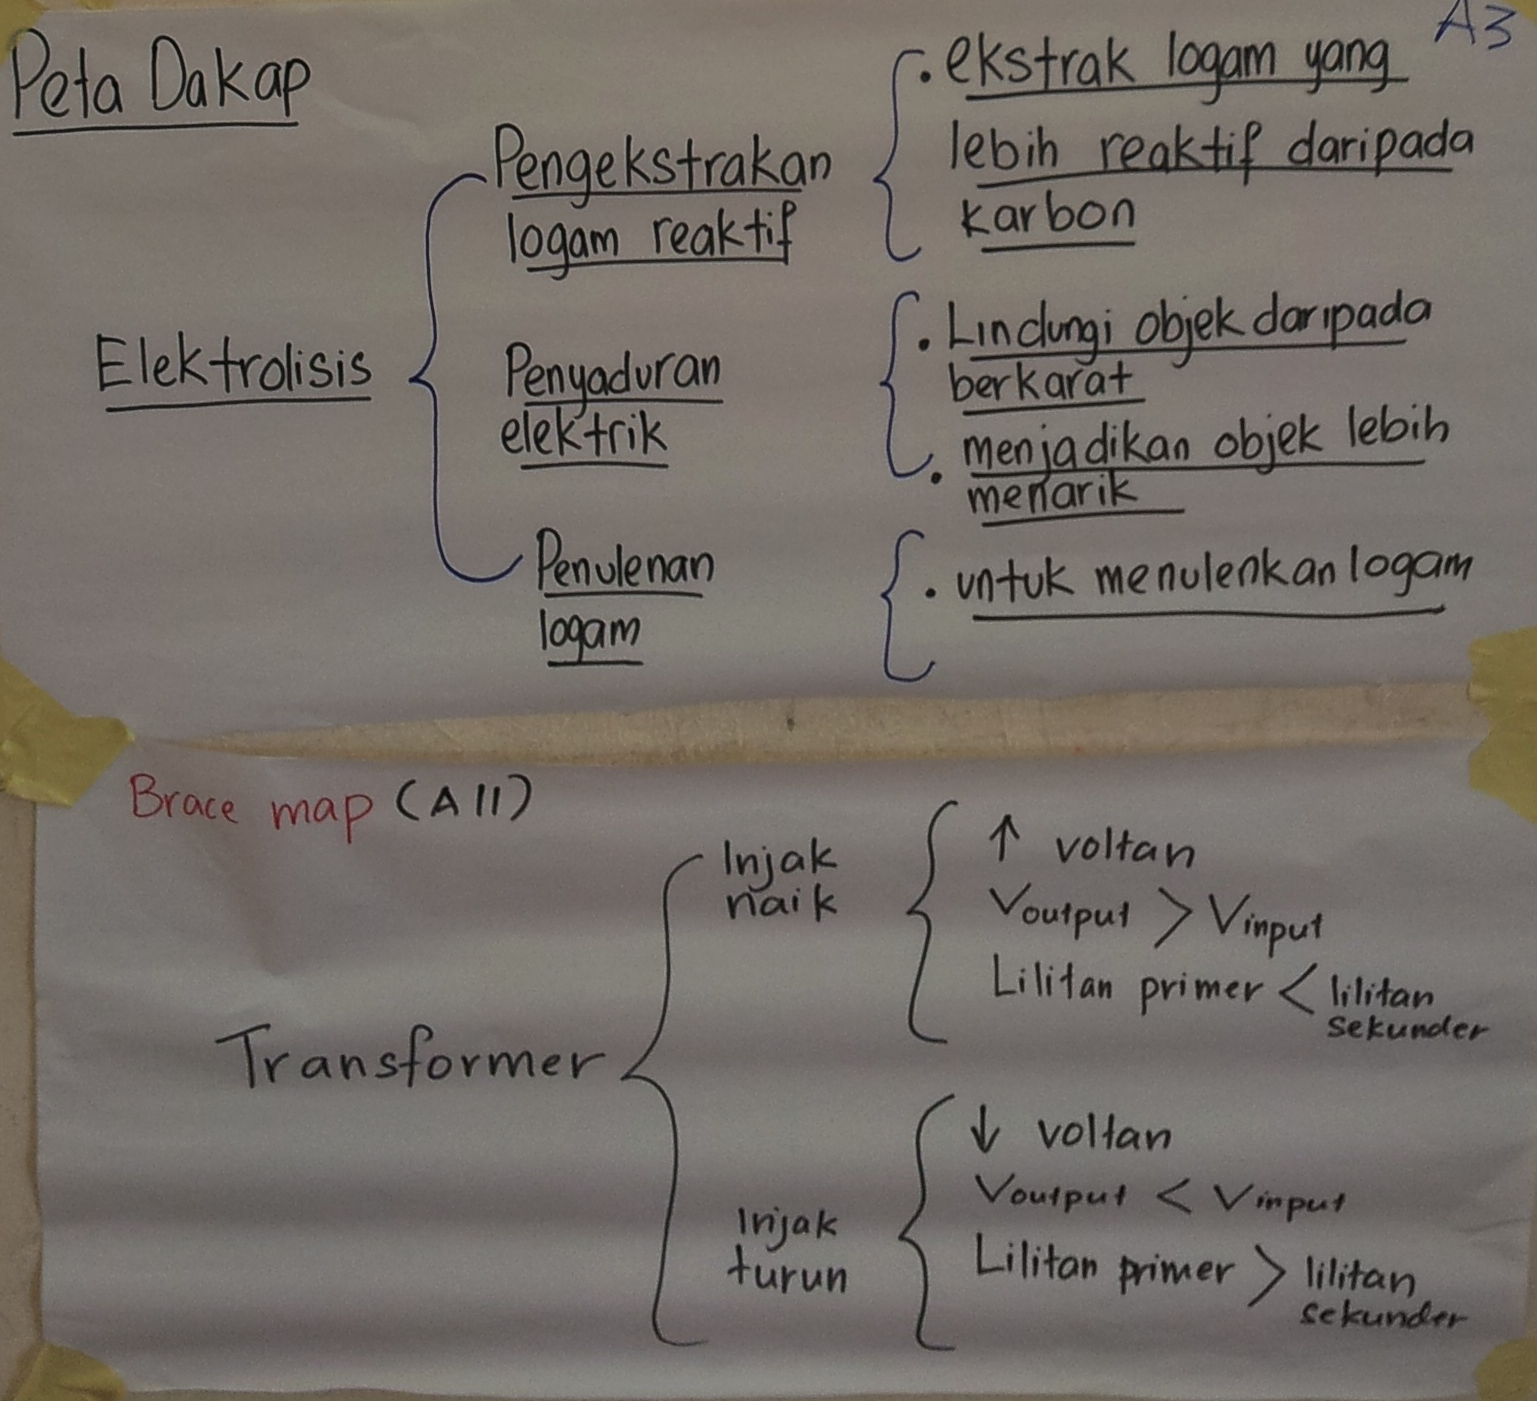 Peta Dakap
A3
Elektrolisis
Pengekstrakan
logam reaktif
• ekstrak logam yang
lebih reaktif daripada
karbon
Penyaduran
elektrik
• Lindungi objek daripada
berkarat
• menjadikan objek lebih
menarik
Penulenan
logam
• untuk menulenkan logam
Brace map (A11)
Transformer
Injak
naik
↑ voltan
Voutput > Vinput
Lilitan primer < lilitan
sekunder
Injak
turun
↓ voltan
Voutput < Vinput
Lilitan primer > lilitan
sekunder